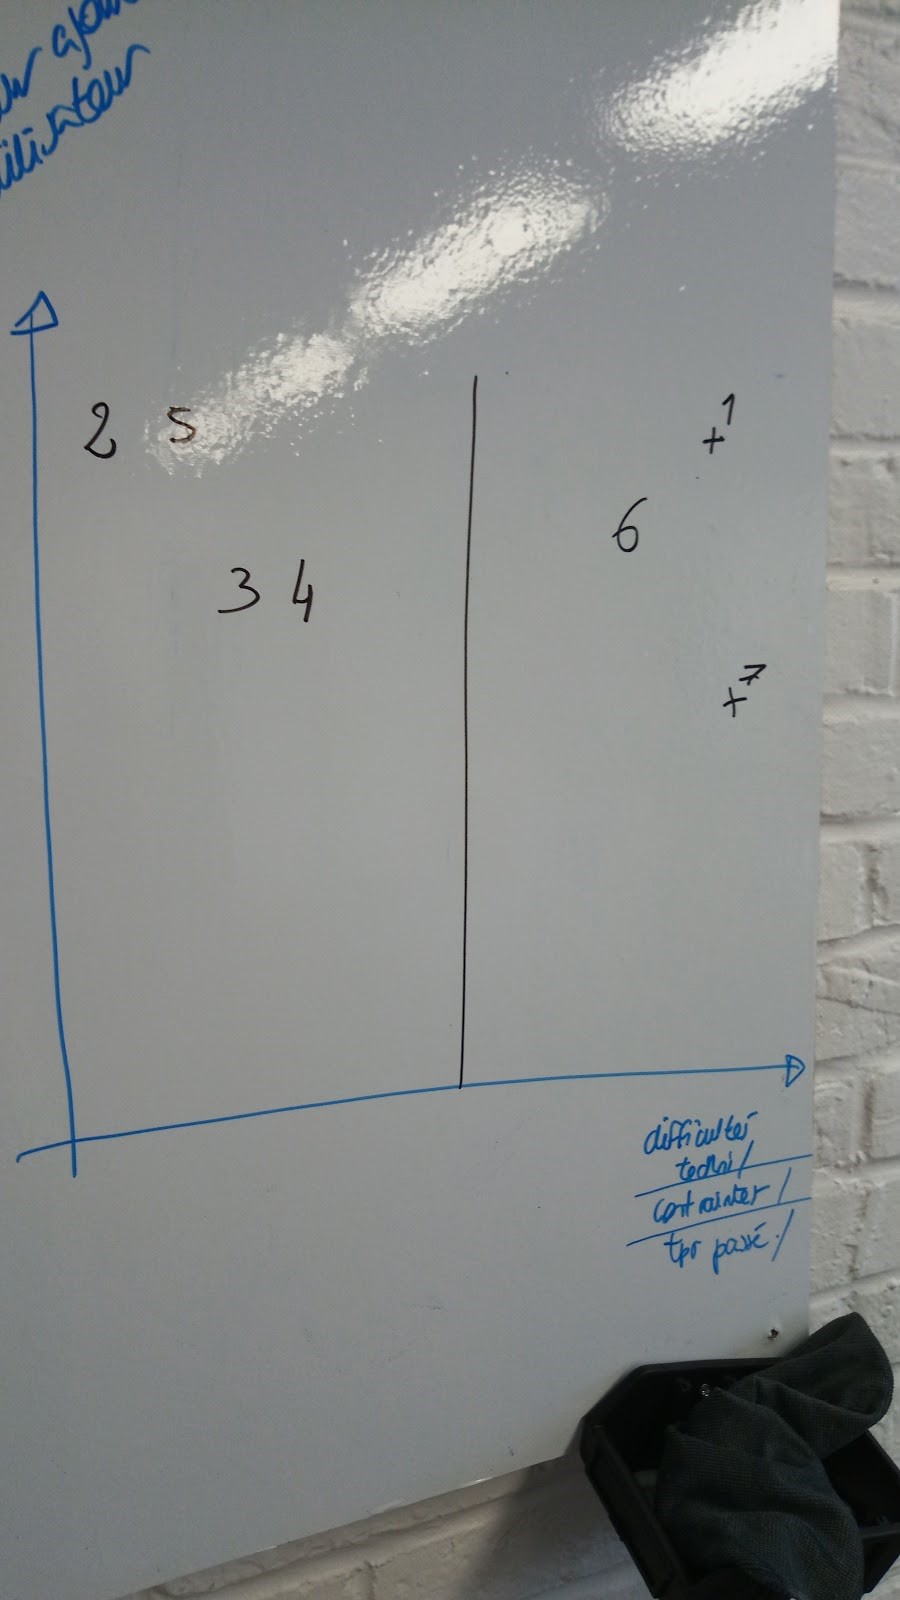 utilisateur
2 5
1
6
3 4
7
difficultés
techni/
contrainter/
tps passé/